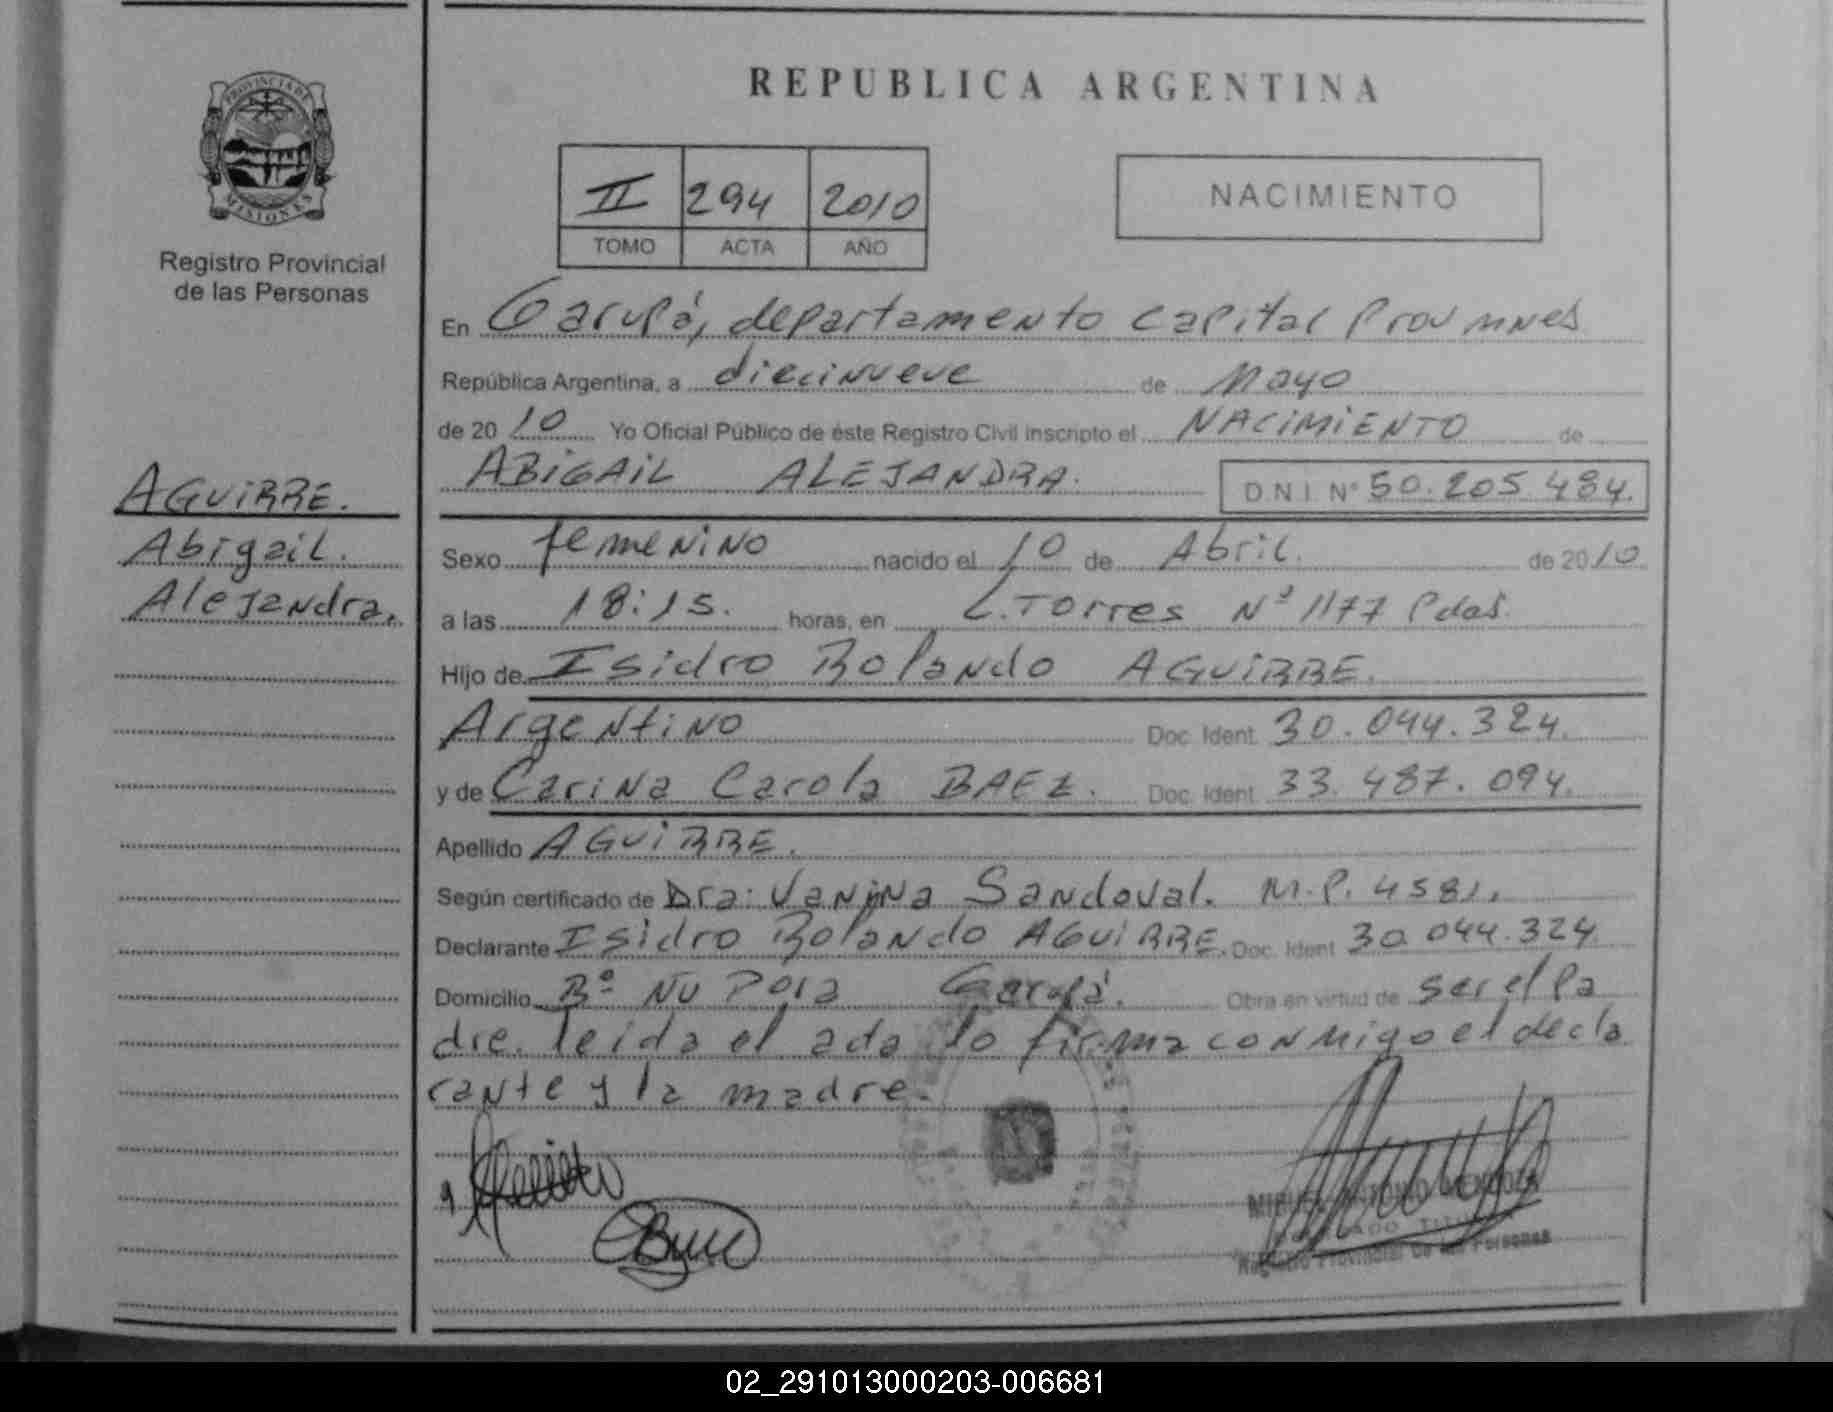 REPUBLICA ARGENTINA
PROVINCIA DE MISIONES
Registro Provincial
de las Personas
II 294 2010
TOMO ACTA AÑO
NACIMIENTO
En Garupá, departamento Capital Prov mnes
República Argentina, a diecinueve de Mayo
de 2010 Yo Oficial Público de éste Registro Civil inscripto el NACIMIENTO de
ABIGAIL ALEJANDRA. DNI Nº 50.205.484.
AGUIRRE.
Abigail.
Alejandra.
Sexo femenino nacido el 10 de Abril. de 2010
a las 18:15. horas, en L. Torres Nº 1177 Pdas.
Hijo de Isidro Rolando AGUIRRE.
Argentino Doc. Ident. 30.044.324.
y de Carina Carola BAEZ. Doc. Ident. 33.487.094.
Apellido AGUIRRE.
Según certificado de Dra: Vanina Sandoval. M.P. 4581.
Declarante Isidro Rolando AGUIRRE. Doc. Ident. 30.044.324
Domicilio Bº Ñu Pora Garupá. Obra en virtud de ser el pa
dre. leida el acta lo firma conmigo el decla
rante y la madre.
Registro Provincial de las Personas
02_291013000203-006681